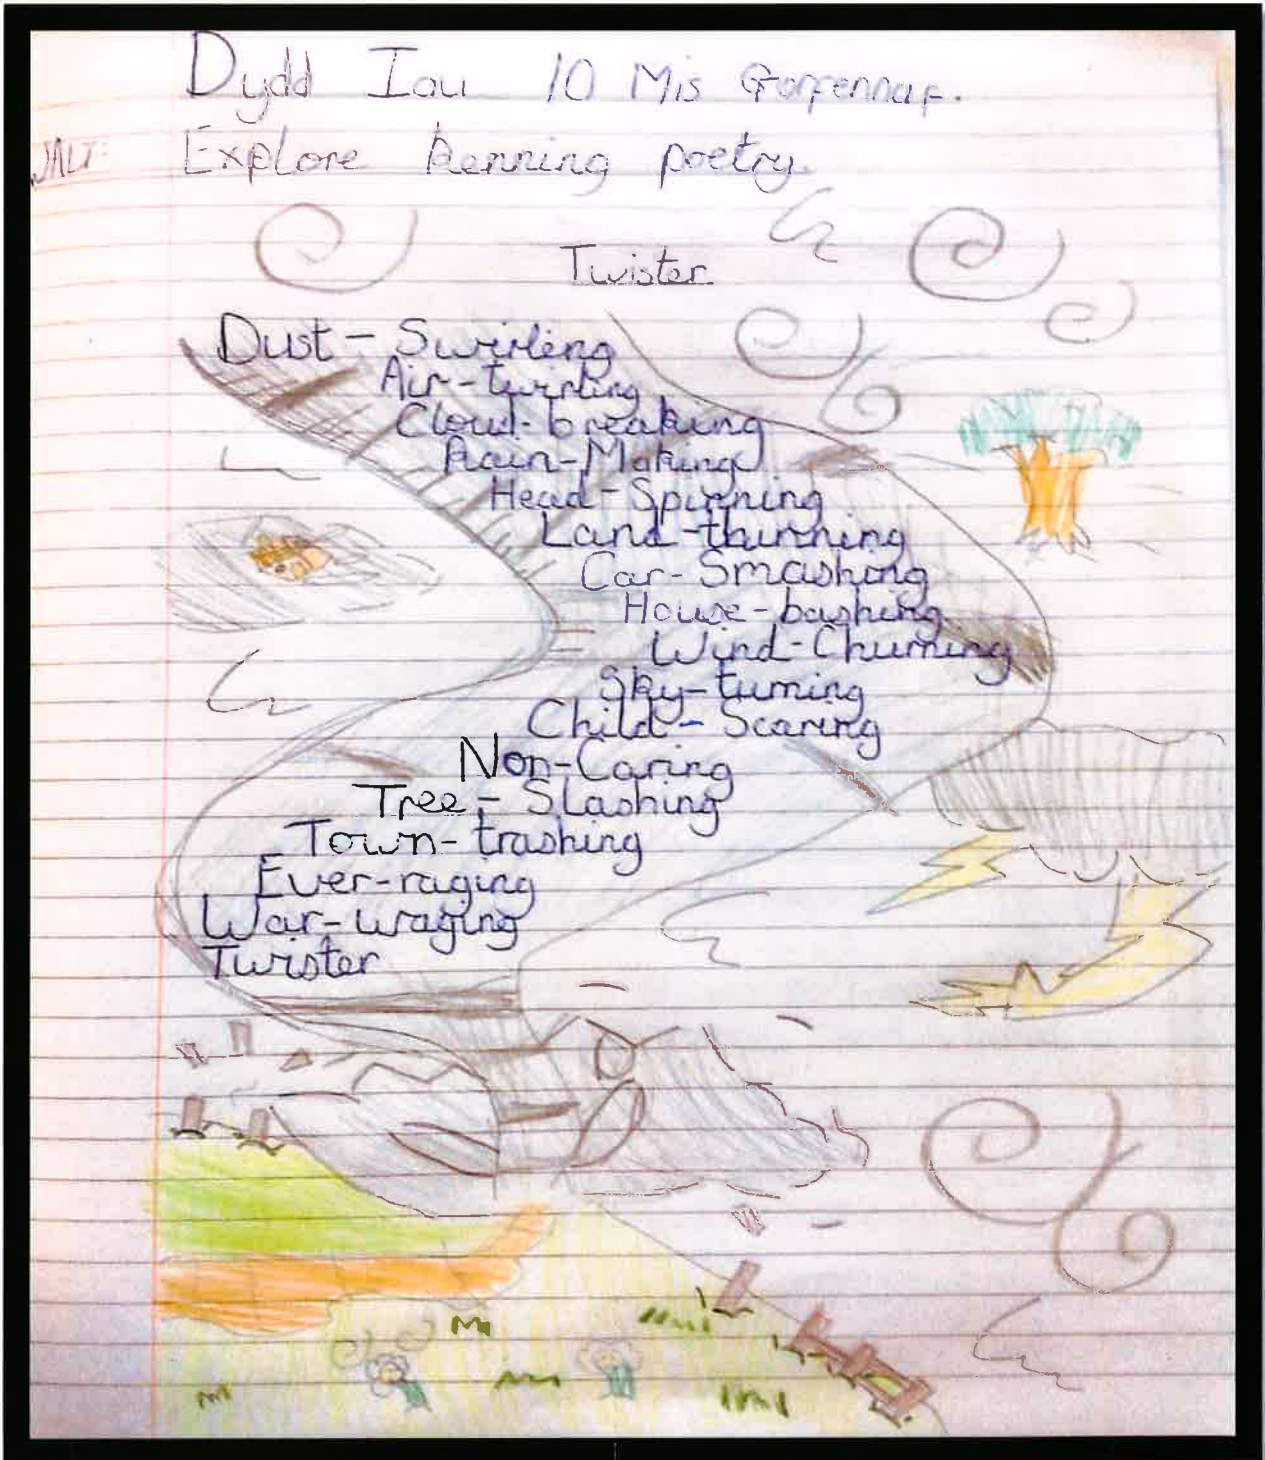 Dydd Iau 10 Mis Gorffennaf.
WALT: Explore kenning poetry.
Twister
Dust - Swirling
Air-twirling
Cloud-breaking
Rain-Making
Head-Spinning
Land-thinning
Car-Smashing
House-bashing
Wind-Churning
Sky-turning
Child-Scaring
Non-Caring
Tree-Slashing
Town-trashing
Ever-raging
War-waging
Twister